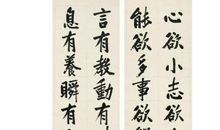 心欲小志欲
能欲多事欲
言有教動有
息有養瞬有